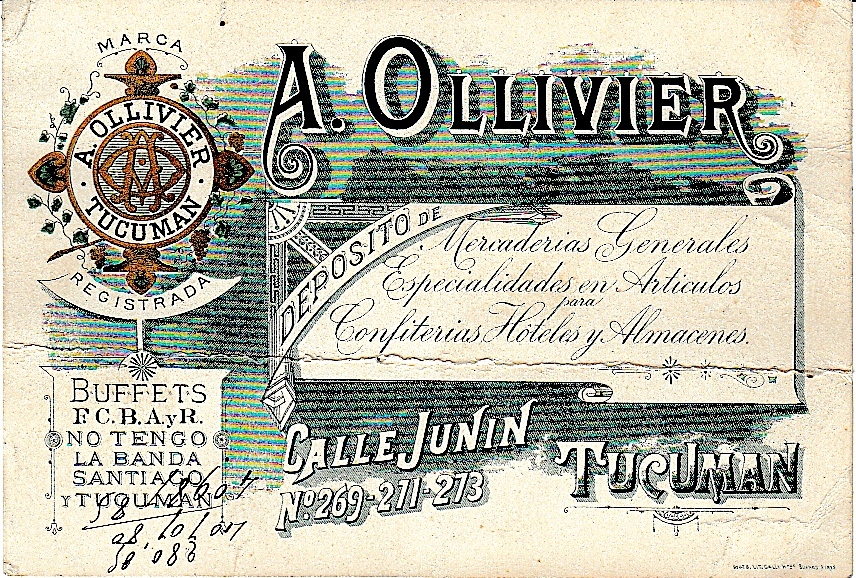 MARCA
A. OLLIVIER
TUCUMAN
REGISTRADA
A. OLLIVIER
DEPOSITO DE
Mercaderias Generales
Especialidades en Articulos
para
Confiterias Hoteles y Almacenes.
BUFFETS
F.C.B.A.y R.
NO TENGO
LA BANDA
SANTIAGO
Y TUQUMAN
CALLE JUNIN
Nº 269-271-273
TUCUMAN